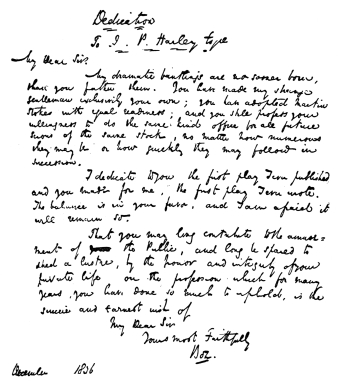 Dedication
To J. P. Harley Esqre
My Dear Sir
My dramatic bantlings are no sooner born,
than you father them. You have made my Strange
Gentleman exclusively your own; you have adopted Martin
Stokes with equal readiness; and you still profess your
willingness to do the same kind office for all future
scions of the same stock, no matter how numerous
they may be or how quickly they may follow in
succession.
I dedicate to you the first play I ever published
and you made for me, the first play I ever wrote.
The balance is in your favor, and I am afraid it
will remain so.
That you may long contribute to the amuse-
ment of the Public, and long be spared to
shed a lustre, by the honor and integrity of your
private life on the profession which for many
years you have done so much to uphold, is the
sincere and earnest wish of
My Dear Sir
Yours most Faithfully
Boz.
December 1836